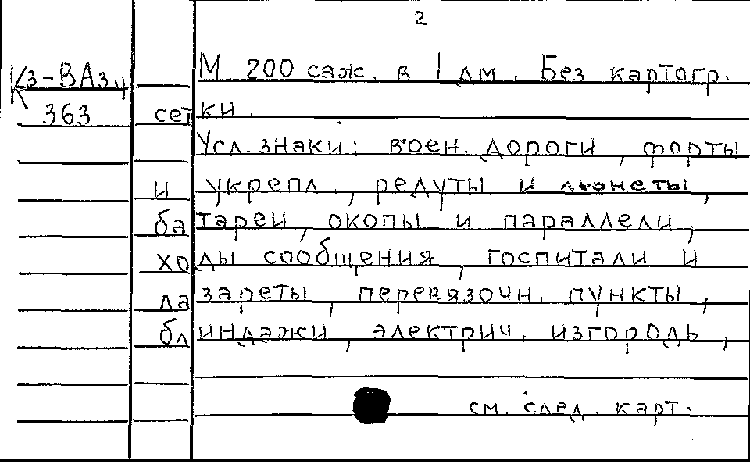 2
Кз-ВАз.ч М 200 саж. в 1 дм. Без картогр.
363 сетки.
Усл. знаки: воен. дороги, форты
и укрепл., редуты и люнеты,
батареи, окопы и параллели,
ходы сообщения, госпитали и
лазареты, перевязочн. пункты,
блиндажи, электрич. изгородь,
см. след. карт.